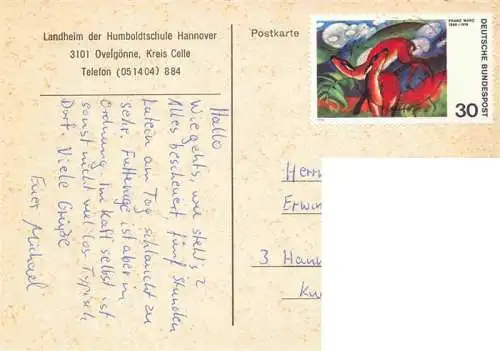 Landheim der Humboldtschule Hannover
3101 Ovelgönne, Kreis Celle
Telefon (051404) 884
Postkarte
FRANZ MARC
1880-1916
DEUTSCHE BUNDESPOST
30
Hallo
Wie gehts, wie steht's?
Alles bescheuert, fünf Stunden
Latein am Tag schlaucht zu
sehr. Futterage ist aber in
Ordnung. Im Kaff selbst ist
sonst nicht viel los. Typisch
Dorf. Viele Grüße
Euer Michael
Herrn
Erwi
3 Hann